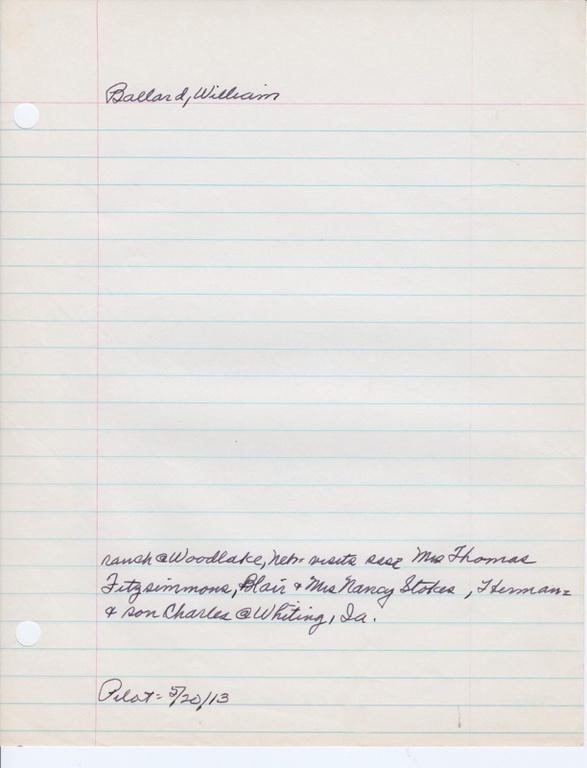 Ballard, William
ranch @ Woodlake, Nebr. visits Mrs Thomas
Fitzsimmons, Blair & Mrs Nancy Stokes, Herman=
& son Charles @ Whiting, Ia.
Pilot= 5/20/13